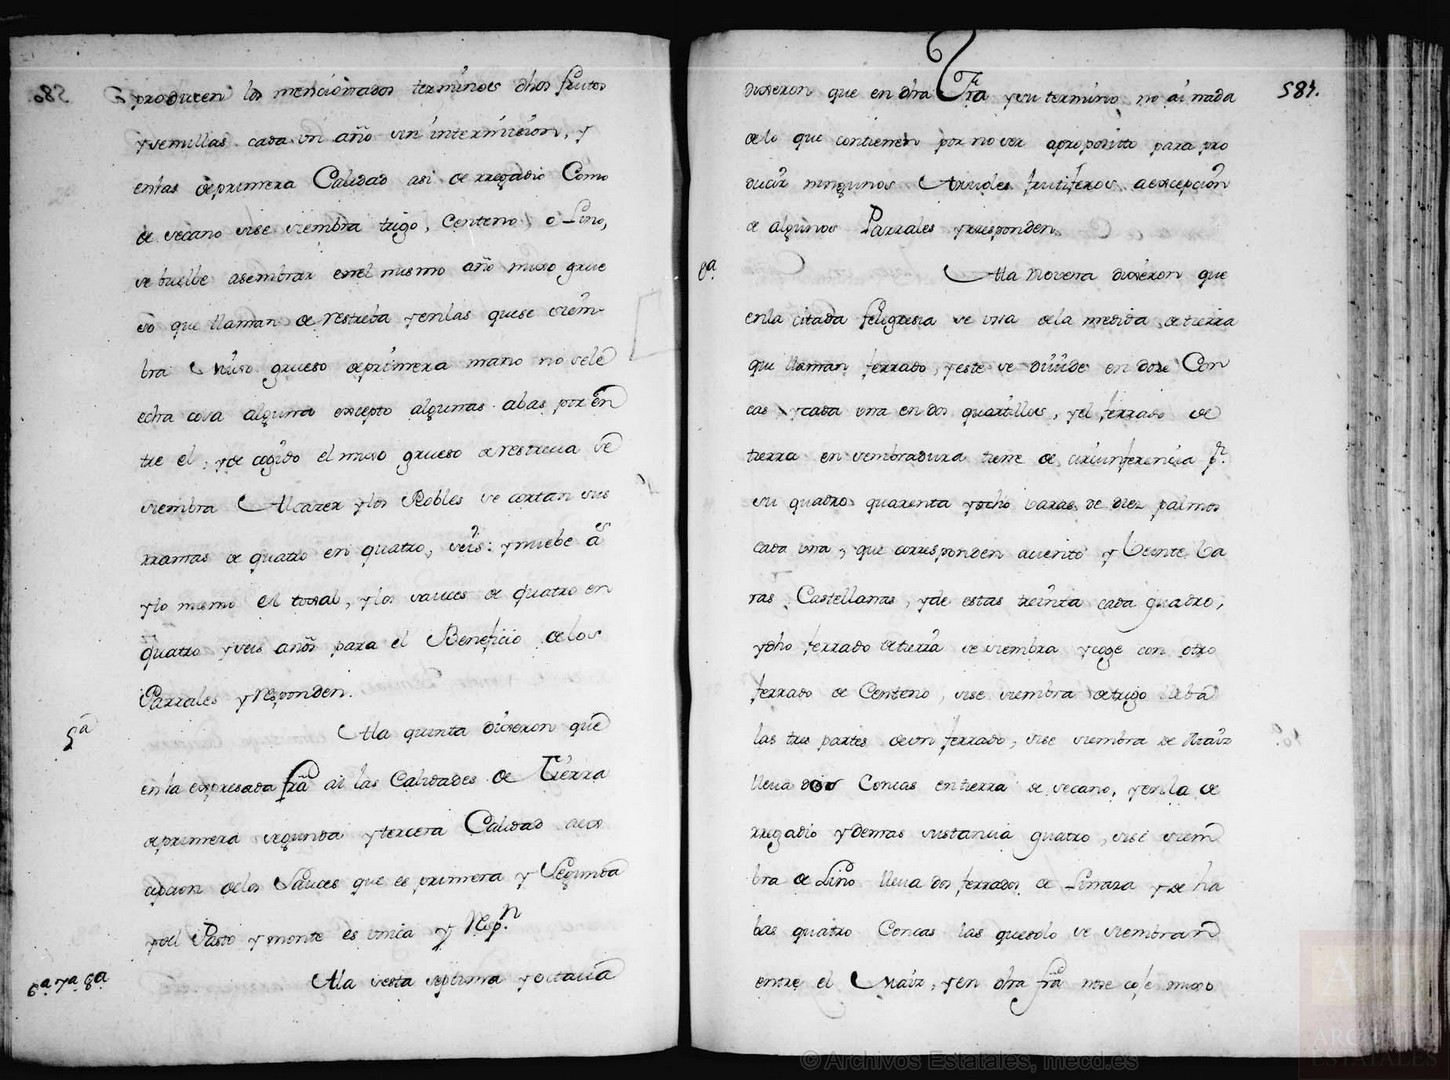 producen los mencionados terminos dhos frutos
y semillas cada un año sin intermision, y
enlas de primera Calidad asi de rregadio Como
de secano si se siembra trigo, Centeno o Lino,
se buelbe asembrar enel mismo año mixo grue
so que llaman de restreba y enlas que se siem
bra Mixo grueso de primera mano no sele
echa cosa alguna excepto algunas abas por en
tre el, y de cogido el mixo grueso de restreua se
siembra Alcazer y los Robles se cortan sus
rramas de quatro en quatro, seis: y nuebe as
y lo mismo el toxal, y los sauces de quatro en
quatro y seis años para el Beneficio de los
Parrales y responden.
5ª
Ala quinta dixeron que
en la expresada fra ai las Calidades de Tierra
de primera segunda y tercera Calidad a
cion de los Sauces que es primera y Segunda
y del Pasto y monte es unica y Resp.n
6ª 7ª 8ª
Ala sexta septima y octaua
584.
dixeron que en dha fra y su termino no ai nada
de lo que contienen por no ser aproposito para pro
ducir ningunos Arboles frutiferos aexcepcion
de algunos Parrales y rresponden.
9ª
Ala Novena dixeron que
enla citada feligresia se usa dela medida de tierra
que llaman ferrado, y este se diuide en doze Con
cas y cada una en dos quartillos, y el ferrado de
tierra en sembradura tiene de circunferencia pr.
su quadro quarenta y ocho baras de diez palmos
cada una, que corresponden aciento y Veinte Va
ras Castellanas, y de estas treinta cada quadro,
y dho ferrado de tierra se siembra y coge con otro
ferrado de Centeno, si se siembra de trigo lleba
las tres partes de un ferrado, si se siembra de Maiz
lleua dos Concas en tierra de secano, y en la de
rregadio y demas sustancia quatro, si se siem
bra de Lino lleua dos ferrados de Linaza y de ha
bas quatro Concas las que solo se siembran
entre el Maiz, y en dha fra no se coje mixo
© Archivos Estatales, mecd.es
ARCHIVOS
ESTATALES